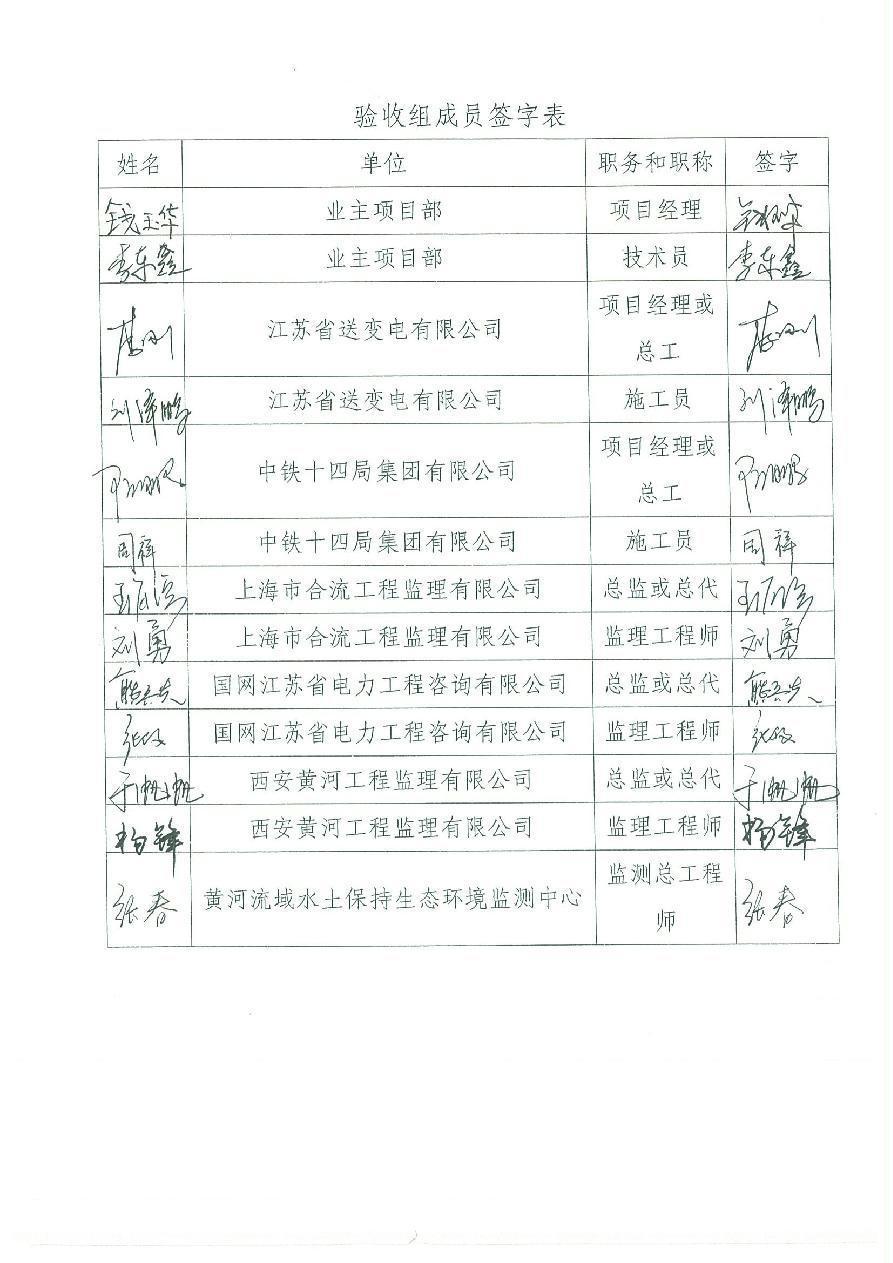 验收组成员签字表
姓名 单位 职务和职称 签字
钱玉华 业主项目部 项目经理
李东鑫 业主项目部 技术员 李东鑫
江苏省送变电有限公司 项目经理或
总工
刘泽鹏 江苏省送变电有限公司 施工员 刘泽鹏
中铁十四局集团有限公司 项目经理或
总工
周祥 中铁十四局集团有限公司 施工员 周祥
上海市合流工程监理有限公司 总监或总代
刘勇 上海市合流工程监理有限公司 监理工程师 刘勇
国网江苏省电力工程咨询有限公司 总监或总代
国网江苏省电力工程咨询有限公司 监理工程师
于帆帆 西安黄河工程监理有限公司 总监或总代 于帆帆
杨锋 西安黄河工程监理有限公司 监理工程师 杨锋
张春 黄河流域水土保持生态环境监测中心 监测总工程 张春
师